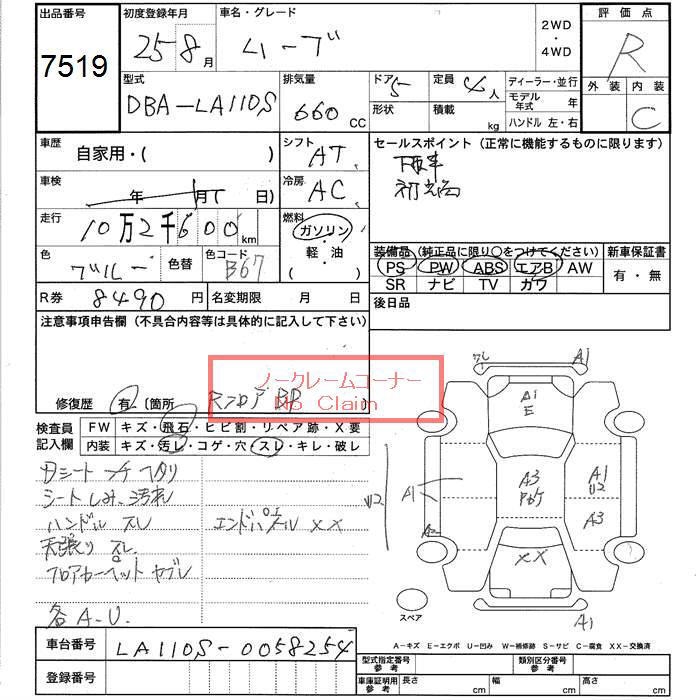 出品番号 7519
初度登録年月 25 8 月
車名・グレード ムーブ
2WD ・ 4WD
評価点 R
外装 内装 C
型式 DBA-LA110S
排気量 660 CC
ドア 5
形状
定員 4 人
積載 kg
ディーラー・並行
モデル年式 年
ハンドル 左・右
車歴 自家用・( )
シフト AT
セールスポイント (正常に機能するものに限ります)
下取車
初出品
車検 年 月( 日)
冷房 AC
走行 10万2千600 km
燃料 ガソリン・軽・油 ( )
色 ブルー 色替 色コード B67
装備品 (純正品に限り○をつけてください) 新車保証書
PS PW ABS エアB AW 有・無
SR ナビ TV カワ
R券 8490 円 名変期限 月 日
後日品
注意事項申告欄 (不具合内容等は具体的に記入して下さい)
ノークレームコーナー
No Claim
修復歴 有・〔箇所 Rフロア BP
検査員記入欄 FW キズ・飛石・ヒビ割・リペア跡・X要
内装 キズ・汚レ・コゲ・穴・スレ・キレ・破レ
シートしみ、汚れ
ハンドル スレ エンドパネル XX
天張り スレ
フロアカーペット ヤブレ
各 A-U.
フレ A1
A1
E
A3
A1
U2
A3
A1
U2
A2
XX
A1
スペア
車台番号 LA110S-0058254
登録番号
A-キズ E-エクボ U-凹み W-補修跡 S-サビ C-腐食 XX-交換済
型式指定番号 参考 類別区分番号 参考
車庫証明用 参考 長さ cm 幅 cm 高さ cm